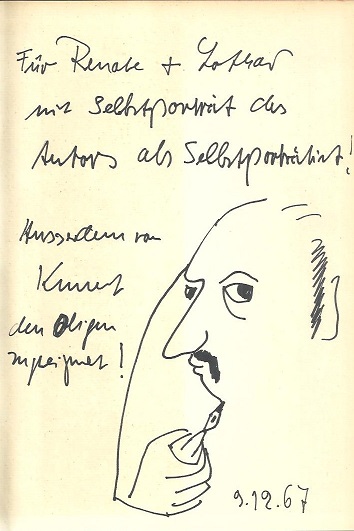 Für Renate + Lothar
mit Selbstporträt des
Autors als Selbstporträtist!
Ausserdem von
Kunert
den Obigen
zugeeignet!
9.12.67